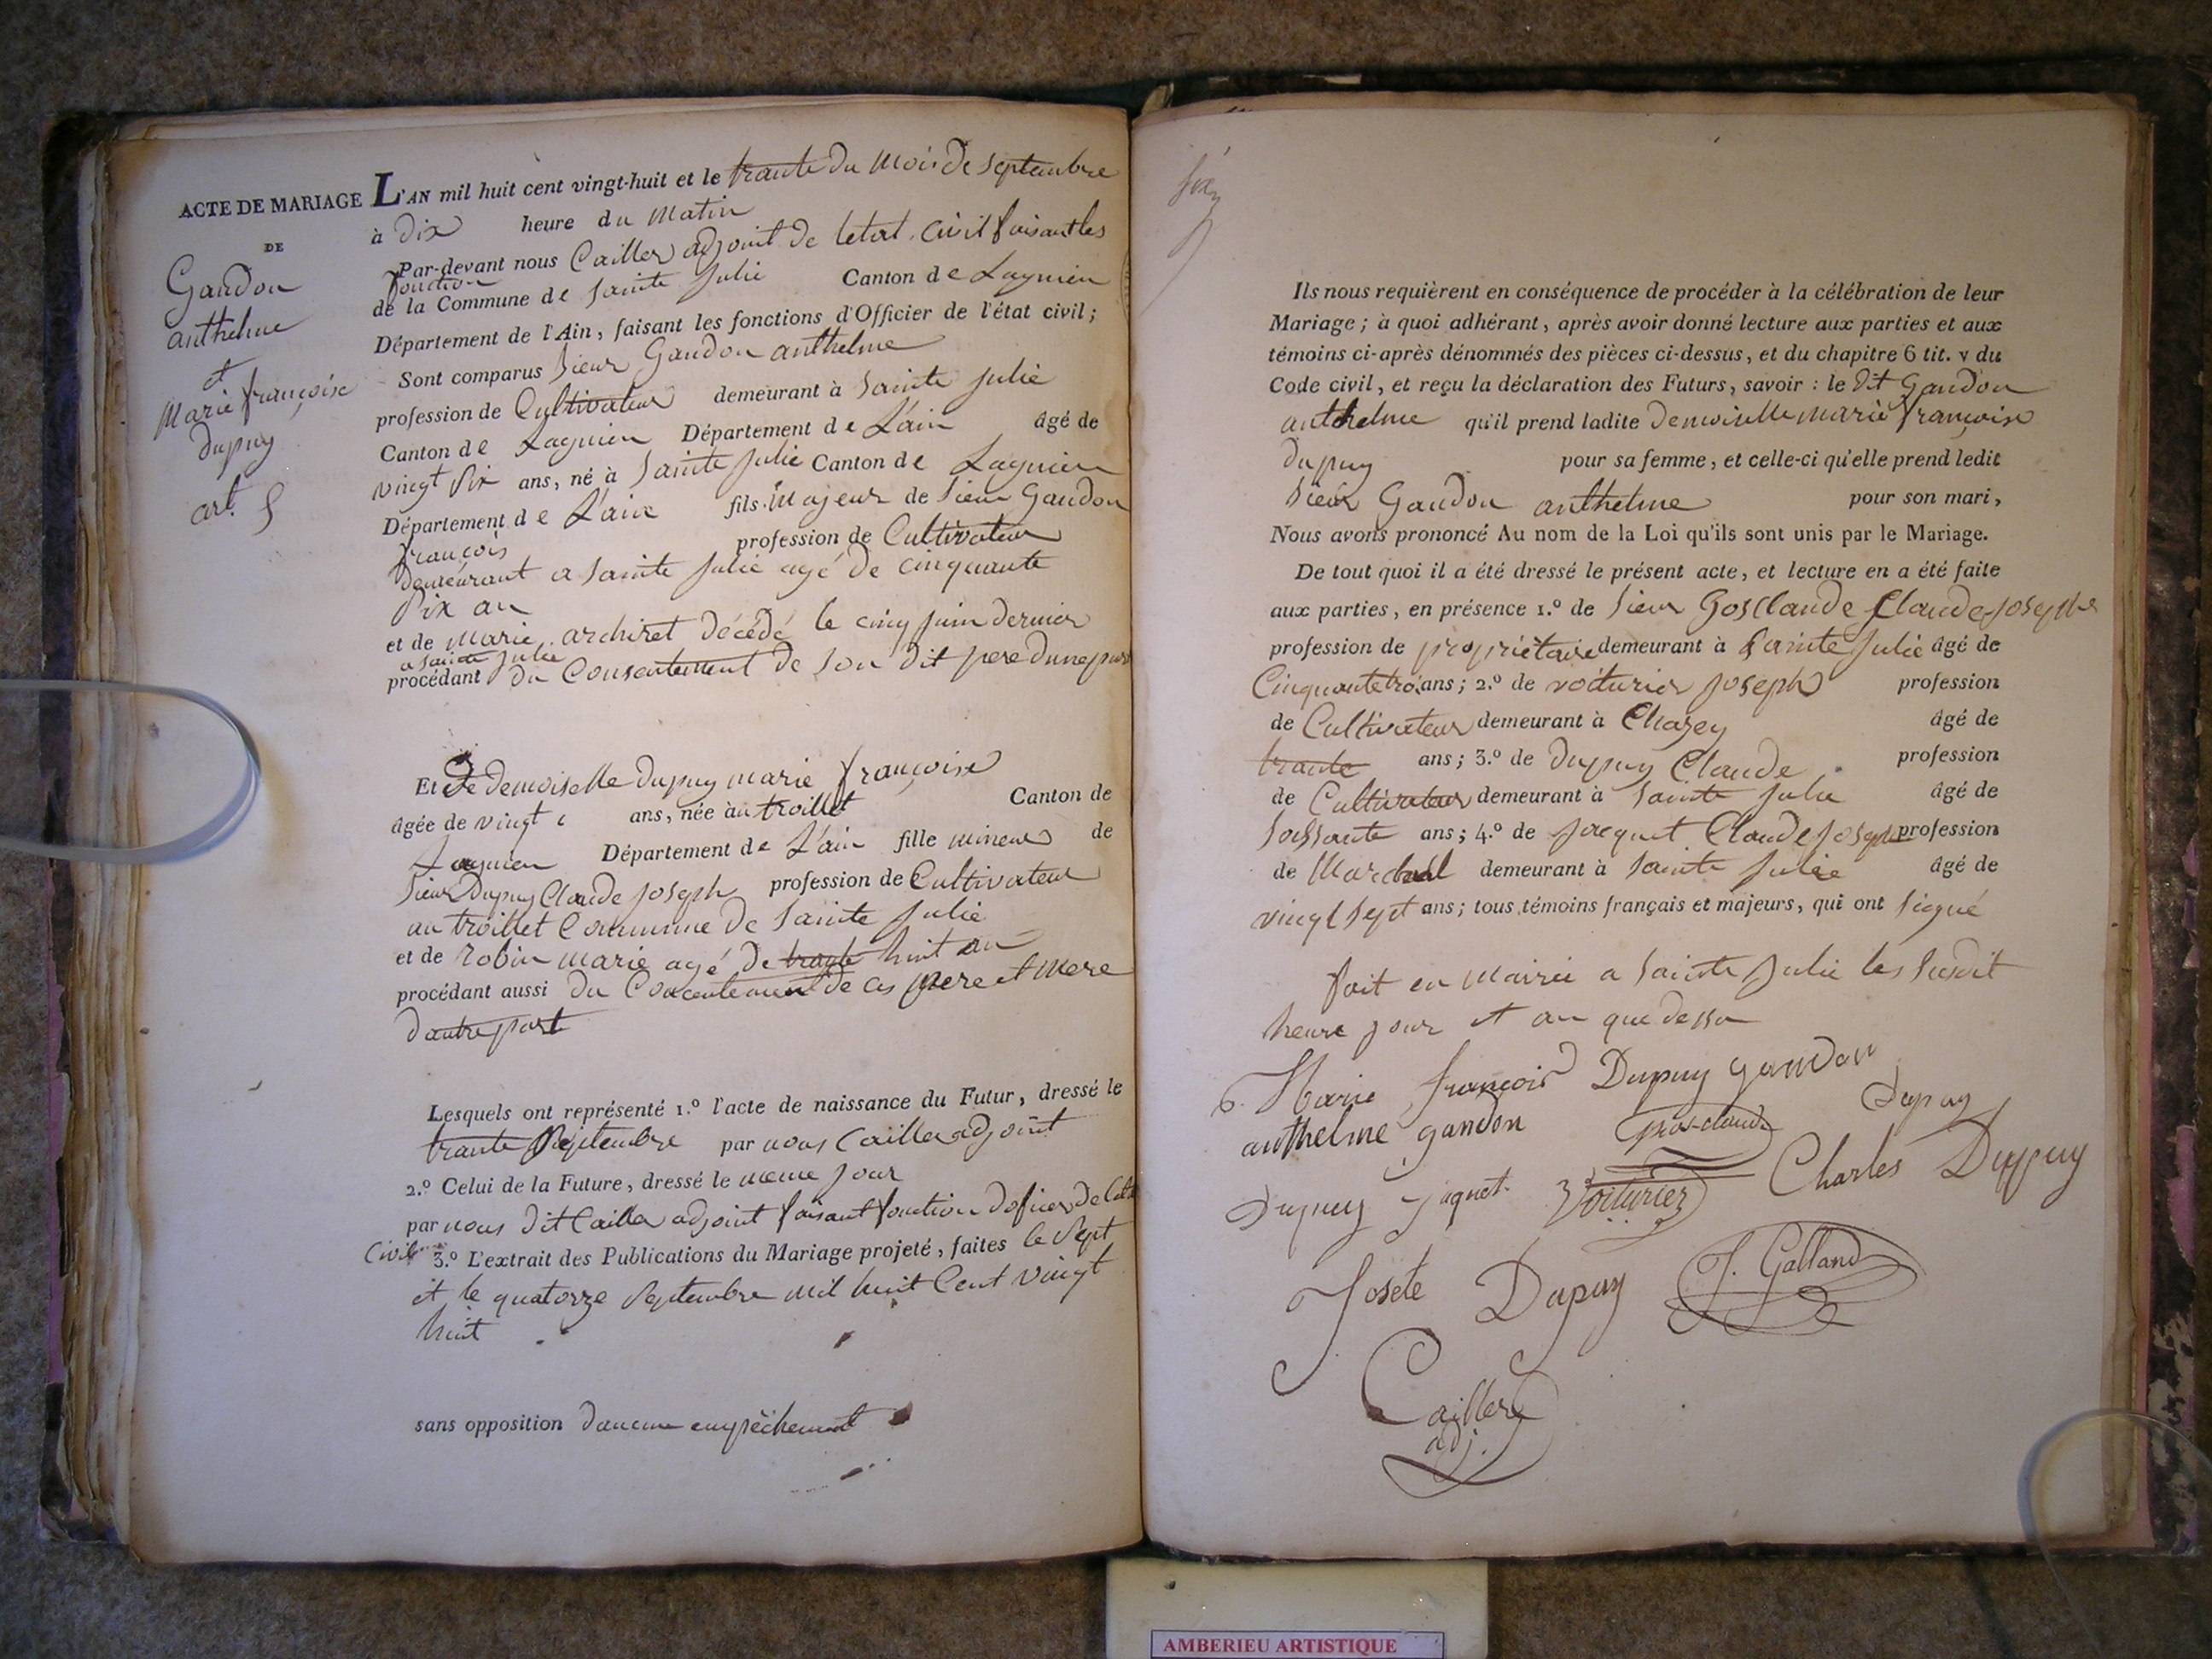 ACTE DE MARIAGE
DE
Gandon
anthelme
et
Marie françoise
dupuy
art. 5
L'AN mil huit cent vingt-huit et le trante du mois de septembre
à dix heure du matin
Par-devant nous Cailler adjoint de letat civil faisant les
fonction
de la Commune de sainte julie Canton de Lagnieu
Département de l'Ain, faisant les fonctions d'Officier de l'état civil;
Sont comparus sieur Gandon anthelme
profession de Cultivateur demeurant à sainte julie
Canton de Lagnieu Département de L'ain âgé de
vingt six ans, né à sainte julie Canton de Lagnieu
Département de L'ain fils majeur de sieur Gandon
françois profession de Cultivateur
demeurant a sainte julie agé de cinquante
six an
et de marie archiret décédé le cinq juin dernier
a sainte julie
procédant du Consentement de son dit pere dune part
Et de demoiselle dupuy marie françoise
âgée de vingt ans, née au troillet Canton de
Lagnieu Département de L'ain fille mineur de
sieur Dupuy Claude joseph profession de Cultivateur
au troillet Commune de sainte julie
et de robin marie agé de trante huit an
procédant aussi du Concentement de ces pere et mere
dautre part
Lesquels ont représenté 1.º l'acte de naissance du Futur, dressé le
trante septembre par nous Cailler adjoint
2.º Celui de la Future, dressé le meme jour
par nous dit Cailler adjoint faisant fonction doficier de letat
Civil 3.º L'extrait des Publications du Mariage projeté, faites le sept
et le quatorze septembre mil huit Cent vingt
huit
sans opposition daucune empêchement
six
Ils nous requièrent en conséquence de procéder à la célébration de leur
Mariage; à quoi adhérant, après avoir donné lecture aux parties et aux
témoins ci-après dénommés des pièces ci-dessus, et du chapitre 6 tit. v du
Code civil, et reçu la déclaration des Futurs, savoir: le dit Gandon
anthelme qu'il prend ladite demoiselle marie françoise
dupuy pour sa femme, et celle-ci qu'elle prend ledit
sieur Gandon anthelme pour son mari,
Nous avons prononcé Au nom de la Loi qu'ils sont unis par le Mariage.
De tout quoi il a été dressé le présent acte, et lecture en a été faite
aux parties, en présence 1.º de sieur Gosclaude Claude joseph
profession de propriétaire demeurant à sainte julie âgé de
Cinquante trois ans; 2.º de voiturier joseph profession
de Cultivateur demeurant à Chazey âgé de
trante ans; 3.º de dupuy Claude profession
de Cultivateur demeurant à sainte julie âgé de
soissante ans; 4.º de jacquet Claude joseph profession
de Marchal demeurant à sainte julie âgé de
vingt sept ans; tous témoins français et majeurs, qui ont signé
fait en mairie a sainte julie les susdit
heure jour et an que dessu
Marie françois Dupuy gandon
anthelme gandon gros-claude Dupuy
Dupuy jaquet Voiturier Charles Dupuy
Josete Dupuy J. Galland
Cailler
adj.
AMBERIEU ARTISTIQUE